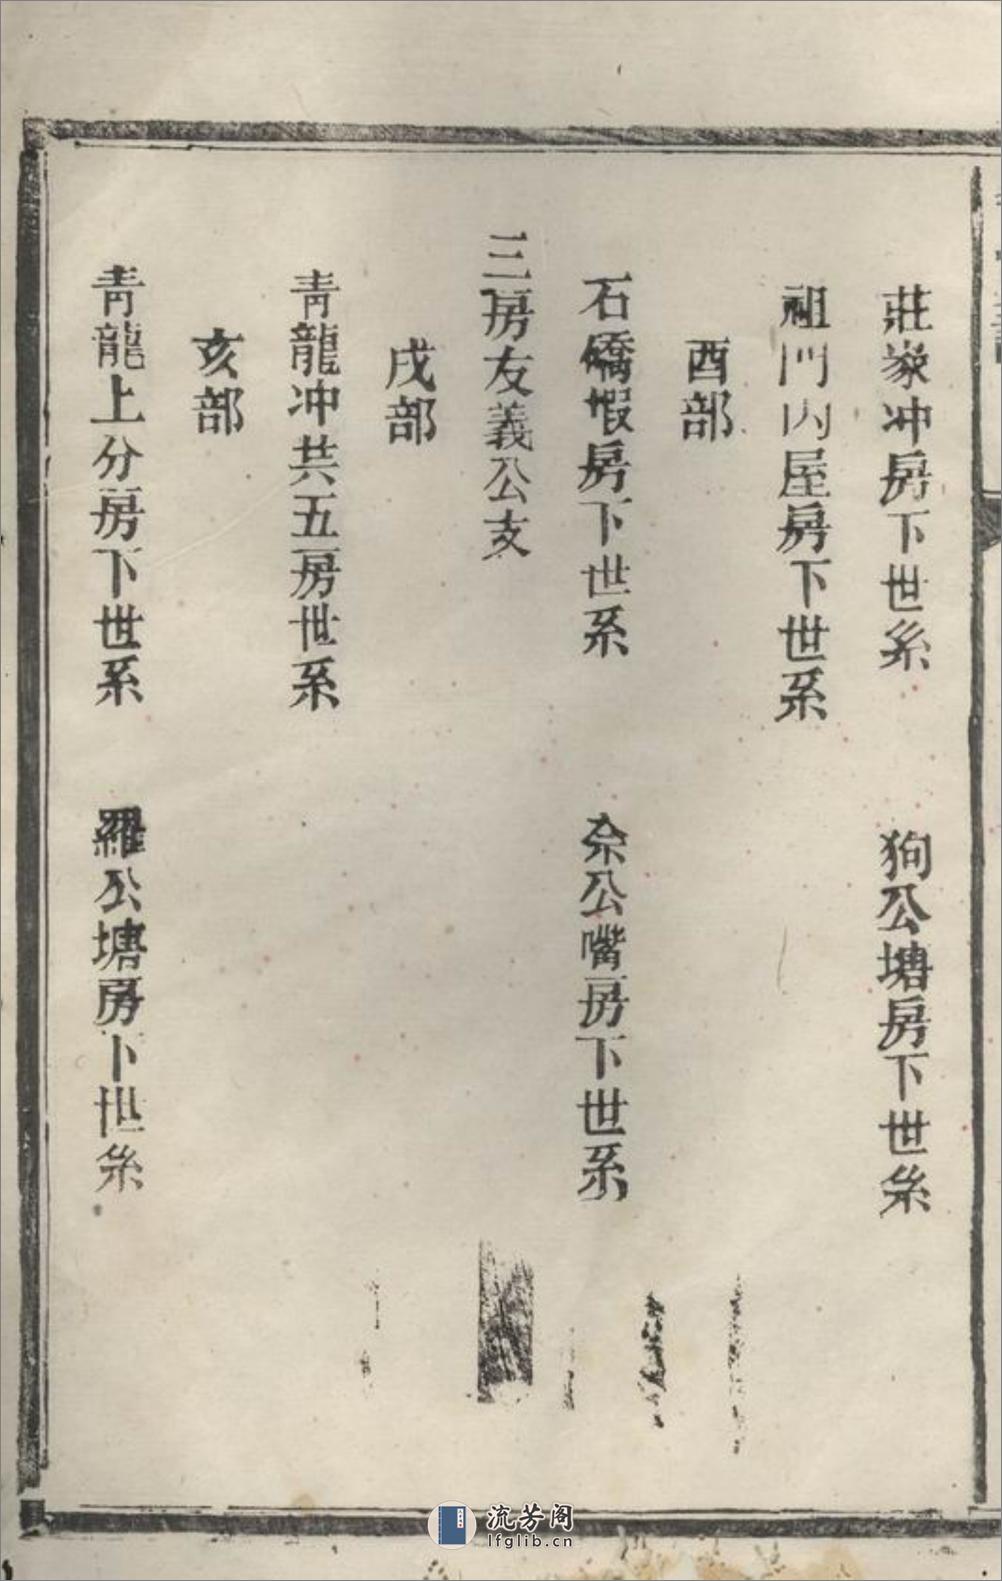 莊家冲房下世系　狗公塘房下世系
祖門内屋房下世系
酉部
石礄塅房下世系　佘公嘴房下世系
三房友義公支
戌部
青龍冲共五房世系
亥部
青龍上分房下世系　羅公塘房下世系
流芳阁
lfglib.cn